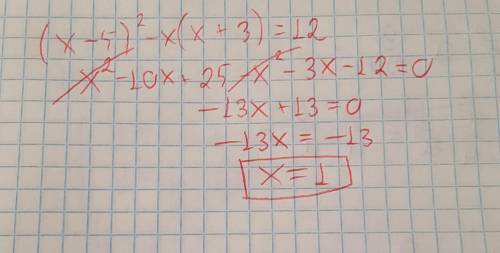 (x-5)²-x(x+3)=12
x²-10x+25-x²-3x-12=0
-13x+13=0
-13x=-13
x=1